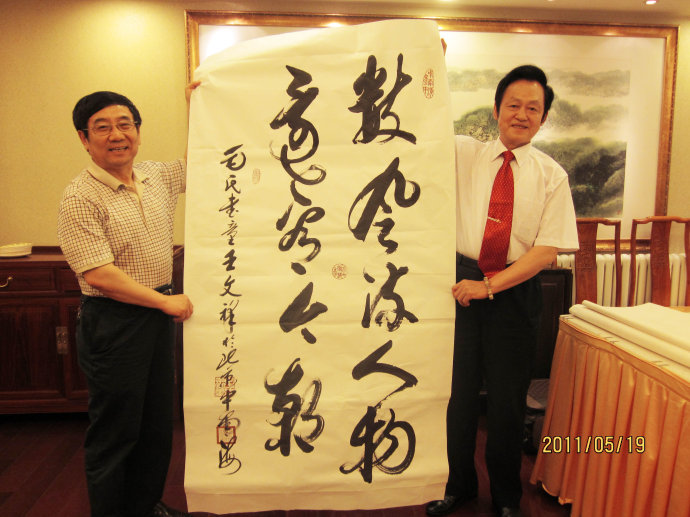 数风流人物
还看今朝
毛氏书童王文祥於北京中南海
2011/05/19